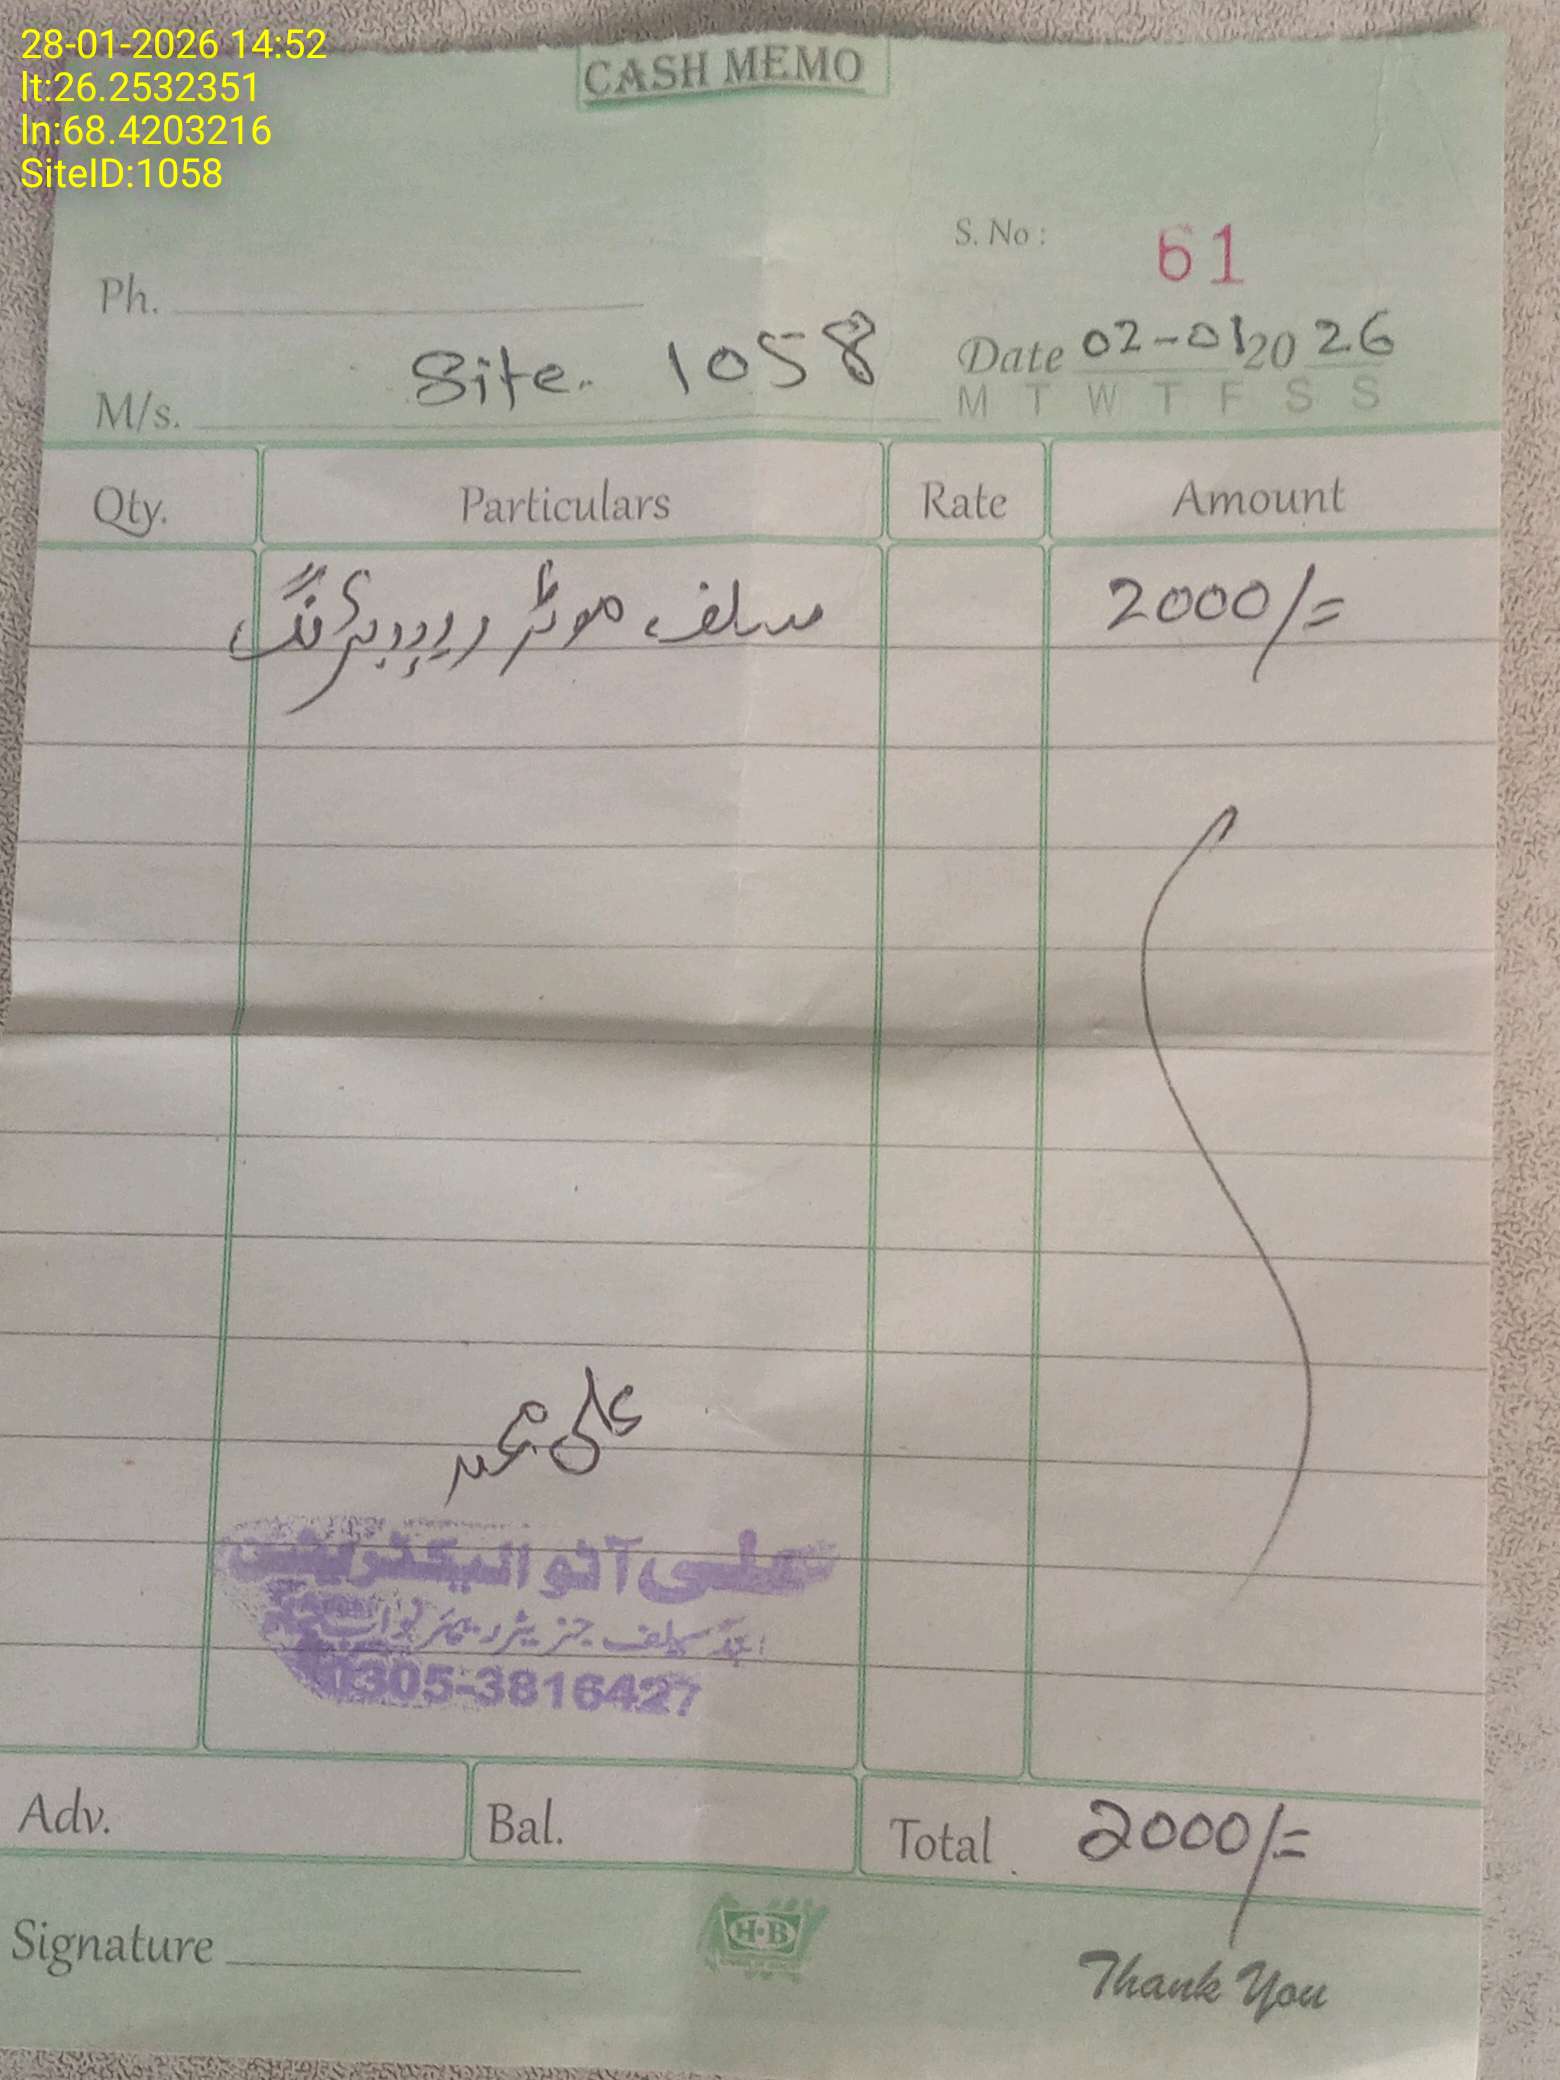 28-01-2026 14:52
lt:26.2532351
ln:68.4203216
SiteID:1058
CASH MEMO
S. No : 61
Ph.
Date 02-01 20 26
M/s. Site. 1058
M T W T F S S
Qty. Particulars Rate Amount
سلف موٹر ریپیرنگ 2000/=
علی محمد
علی آٹو الیکٹریشن
اینڈ سیلف جنریٹر
0305-3816427
Adv. Bal. Total 2000/=
H•B
Signature
Thank You